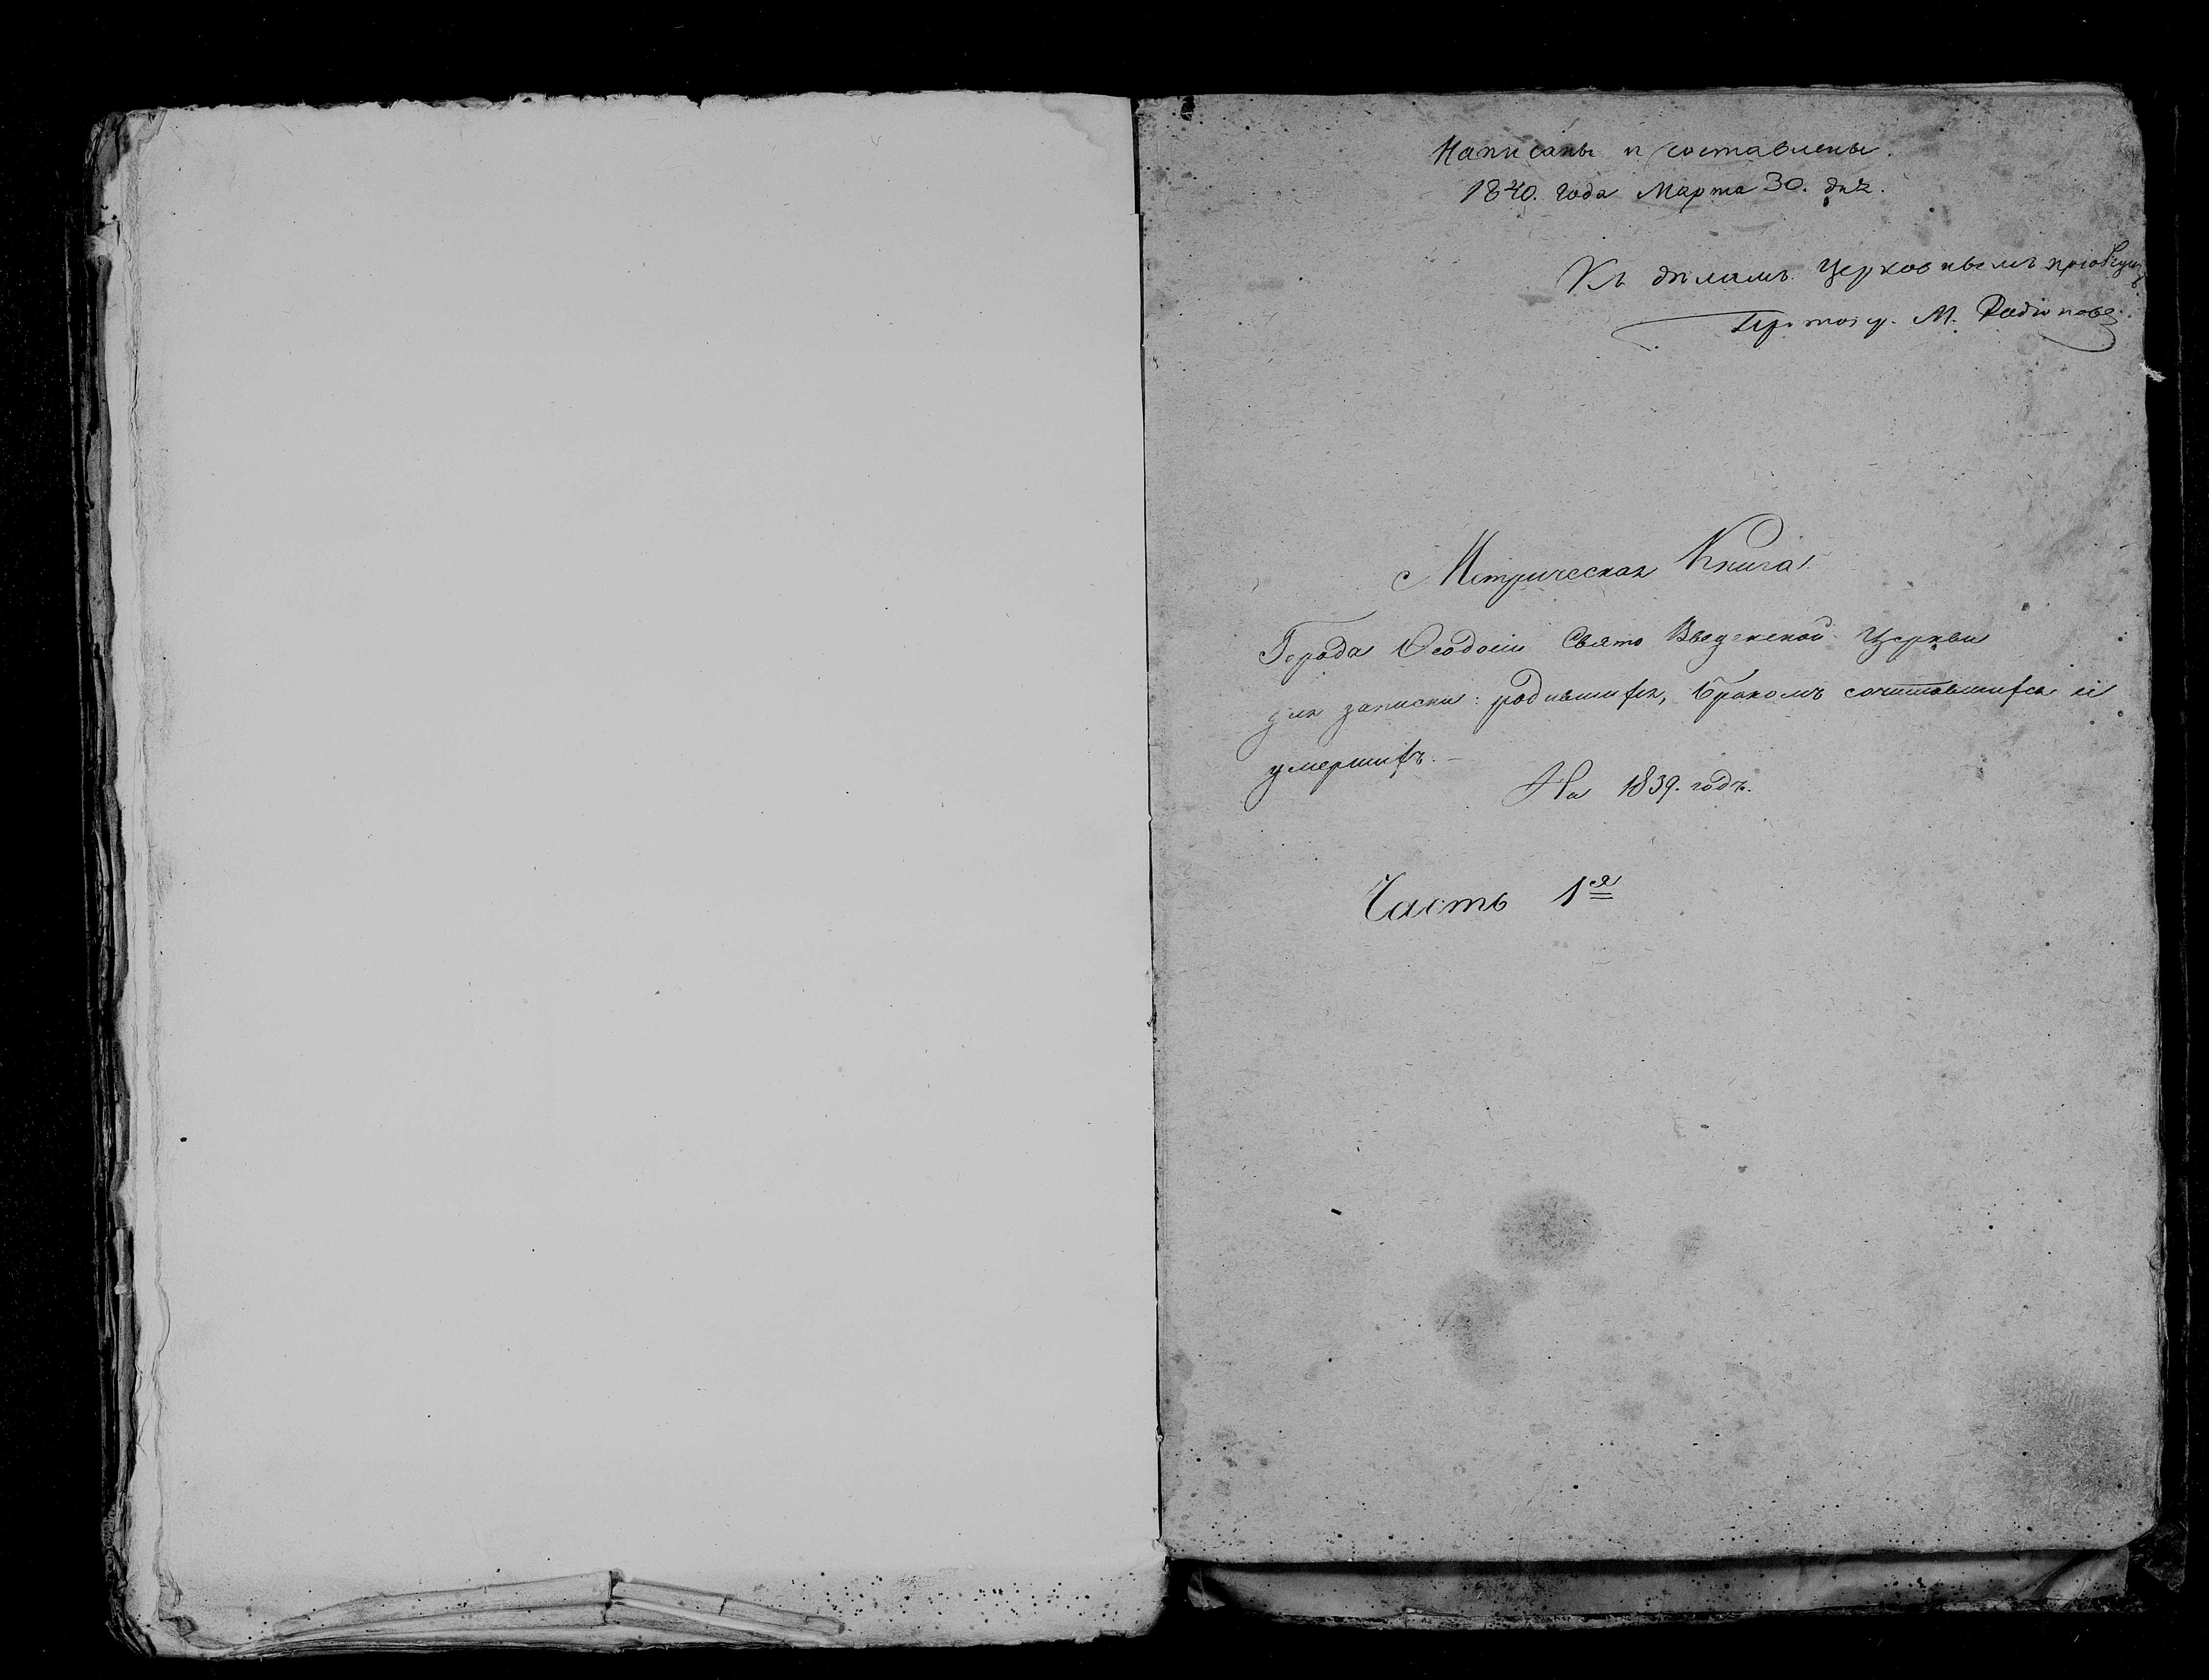 Написаны и составлены.
1840. года Марта 30. дня.
Къ дѣламъ Церковнымъ
Протоіер. М. Радіоновъ
Метрическая Книга
Города Ѳеодосіи Свято Введенской Церкви
для записки: родившихся, бракомъ сочитавшихся и
умершихъ. —
На 1839. годъ.
Часть 1я